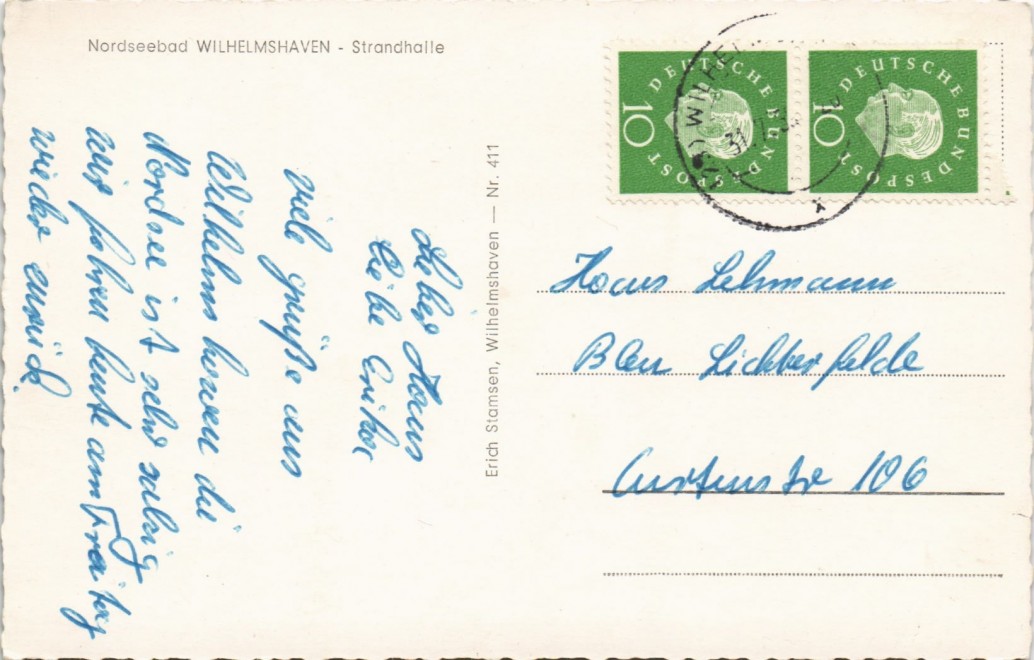 Nordseebad WILHELMSHAVEN - Strandhalle
Lieber Hans
Liebe Erika
viele Grüße aus
Wilhelmshaven die
Nordsee ist sehr salzig
wir fahren heute am Freitag
wieder zurück.
Erich Stamsen, Wilhelmshaven — Nr. 411
DEUTSCHE BUNDESPOST
10
DEUTSCHE BUNDESPOST
10
WILHEL
31.7.
Hans Lehmann
Bln Lichterfelde
str 106